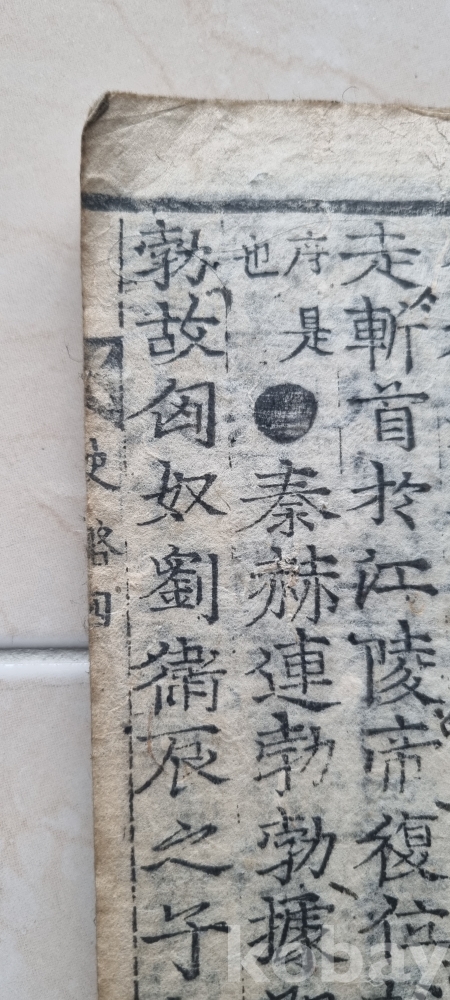 走斬首扵江陵帝復位
序是
也
●秦赫連勃勃據
勃故匈奴劉衛辰之子
史略四
kobay